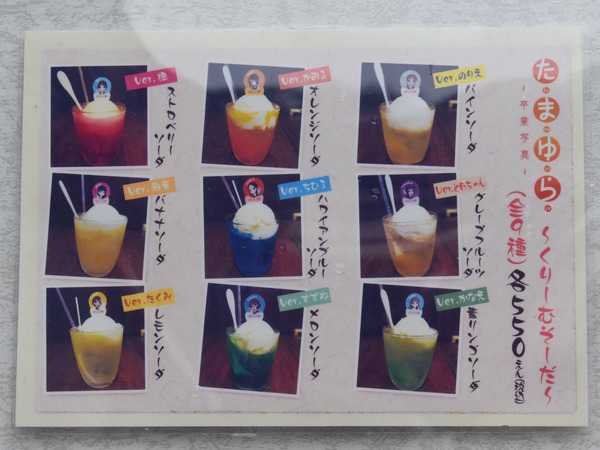 たまゆら
～卒業写真～
～くりーむそーだ～
(全9種)各550えん(税込)
Ver.楓
ストロベリー
ソーダ
Ver.かおる
オレンジソーダ
Ver.のりえ
パインソーダ
Ver.麻音
バナナソーダ
Ver.ちひろ
ハワイアンブルー
ソーダ
Ver.ともちゃん
グレープフルーツ
ソーダ
Ver.たくみ
レモンソーダ
Ver.すずね
メロンソーダ
Ver.かなえ
青リンゴソーダ